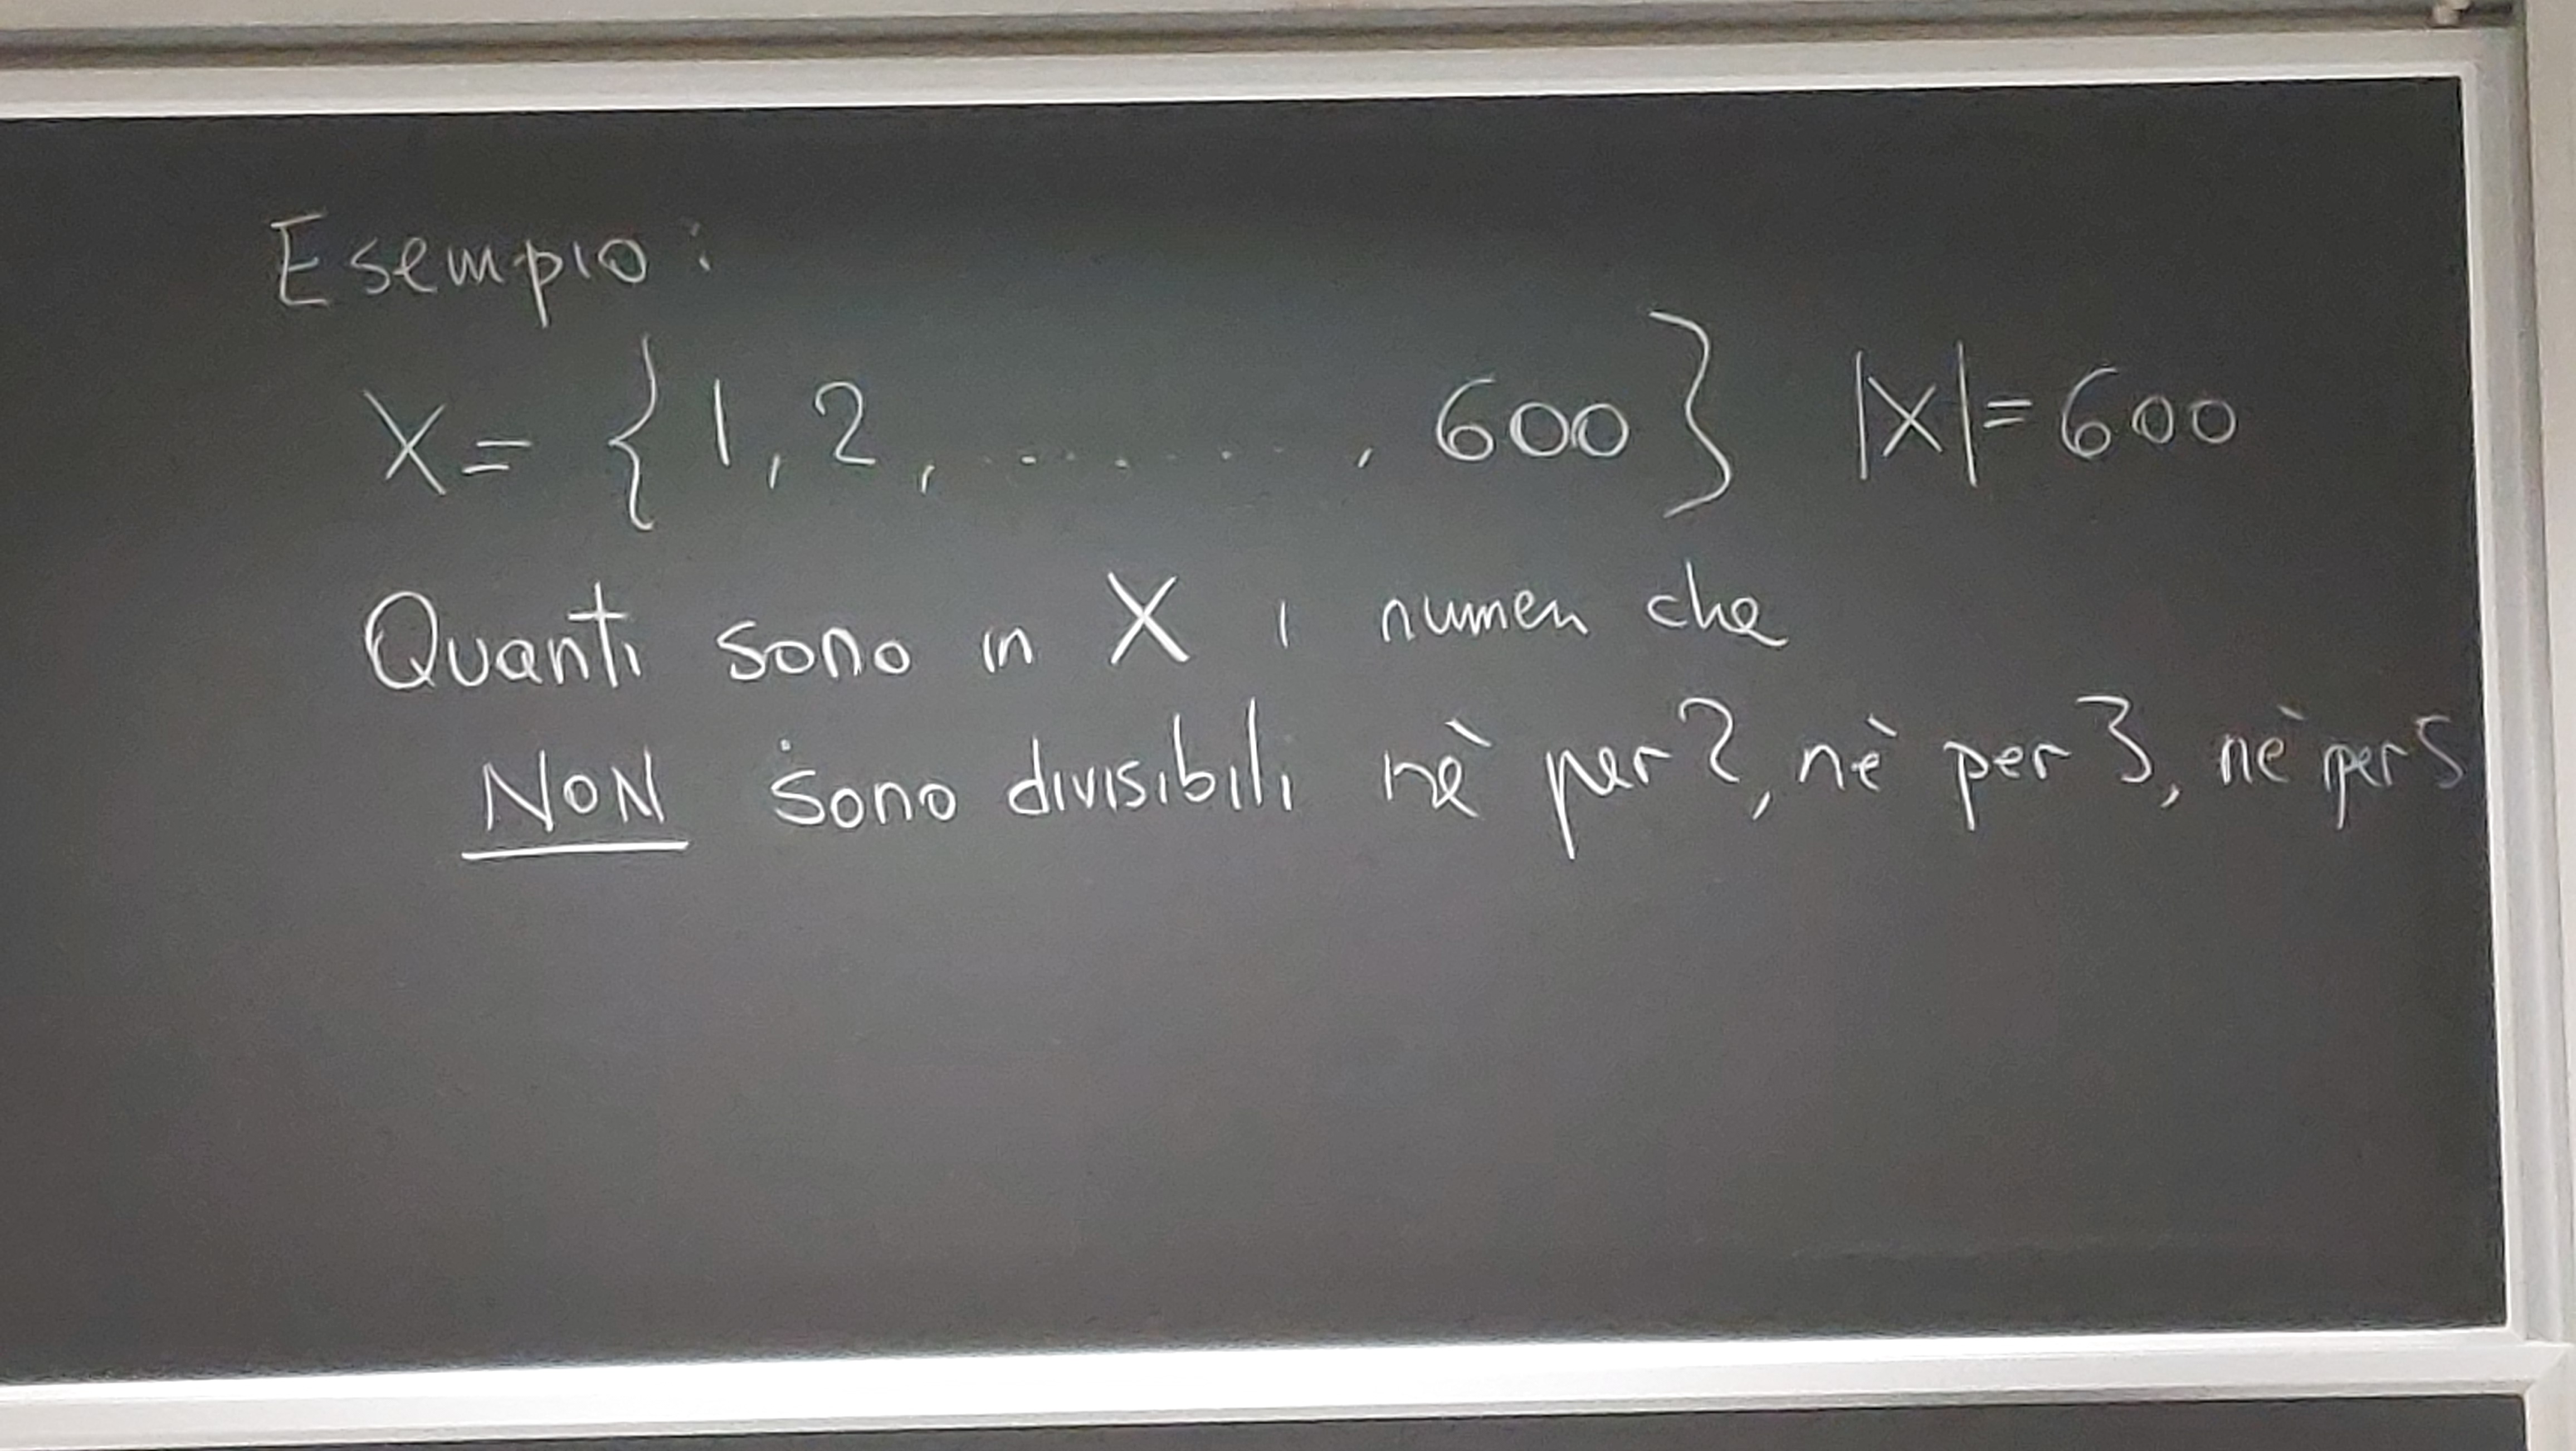 Esempio:
X = {1, 2, ........, 600} |X| = 600
Quanti sono in X i numeri che
NON sono divisibili nè per 2, nè per 3, nè per 5